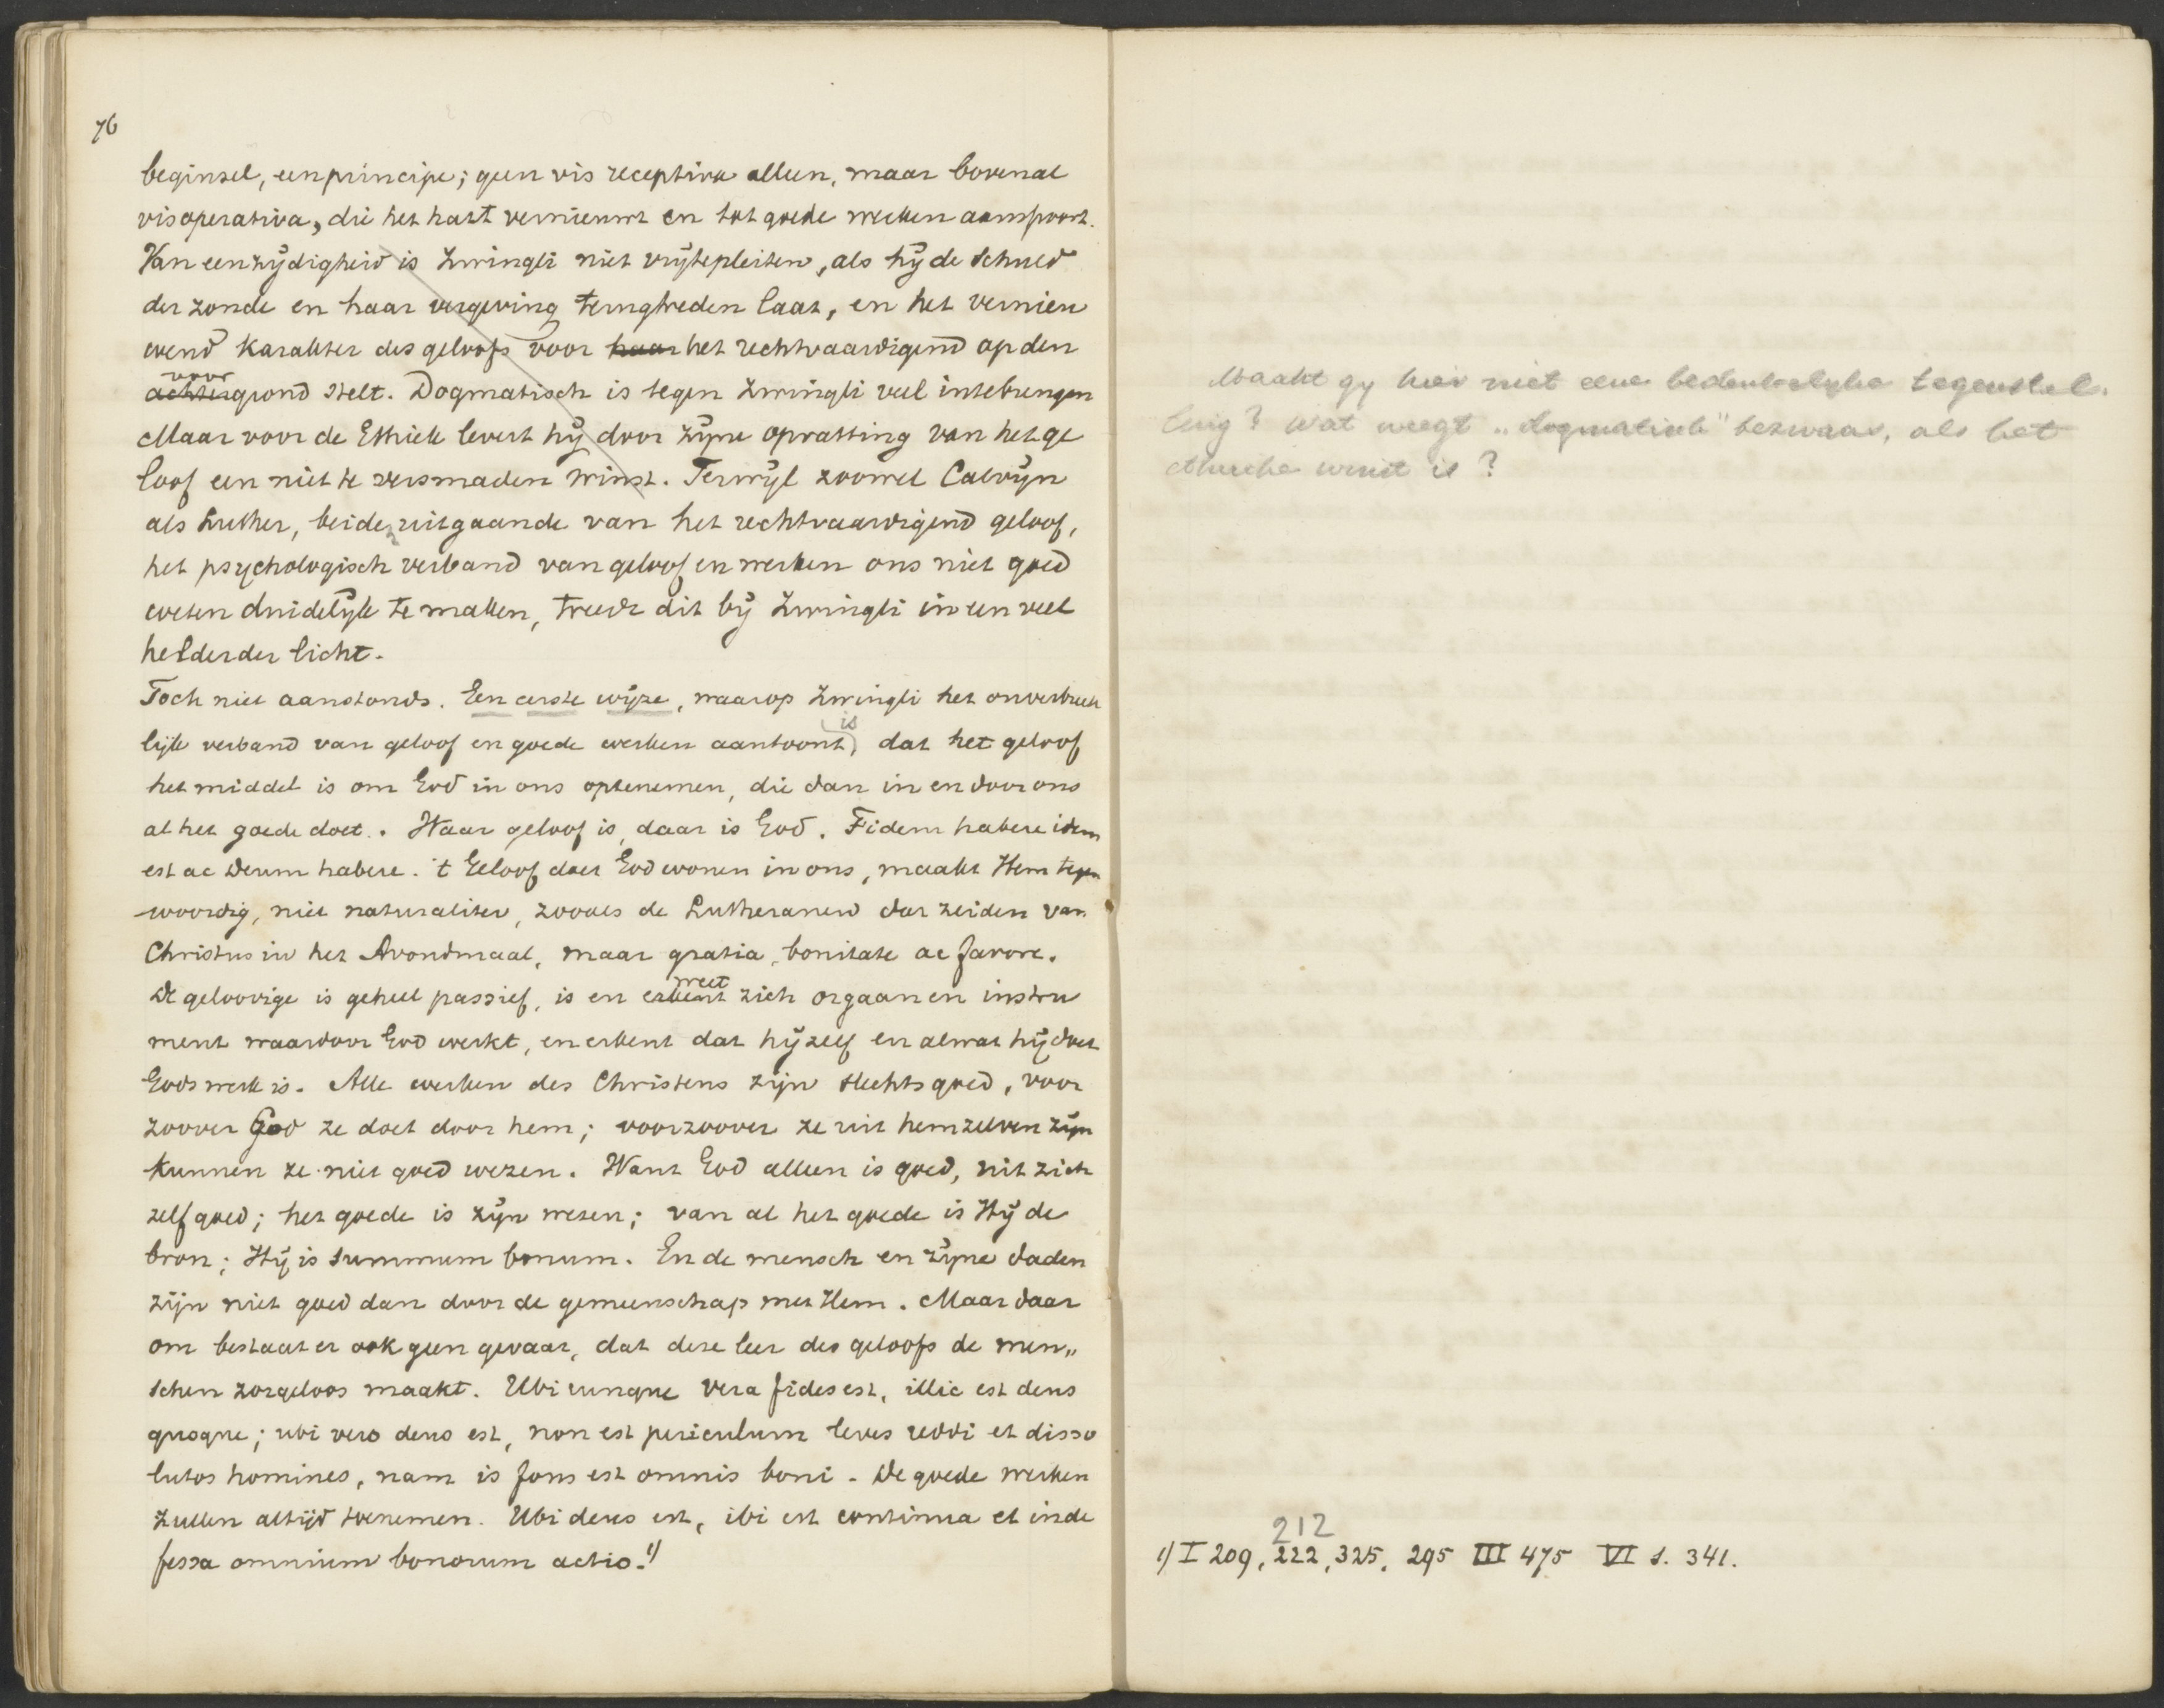 76
beginsel, een principe; geen vis receptiva alleen, maar bovenal
vis operativa, die het hart vernieuwt en tot goede werken aanspoort.
Van eenzijdigheid is Zwingli niet vrijtepleiten, als hij de schuld
der zonde en haar vergeving terugtreden laat, en het vernieu
wend karakter des geloofs voor haar het rechtvaardigend op den
voor
achtergrond stelt. Dogmatisch is tegen Zwingli veel intebrengen
Maar voor de Ethiek levert hij door zijne opvatting van het ge
loof een niet te versmaden winst. Terwijl zoowel Calvijn
als Luther, beide uitgaande van het rechtvaardigend geloof,
het psychologisch verband van geloof en werken ons niet goed
weten duidelijk te maken, treedt dit bij Zwingli in een veel
helderder licht.
Toch niet aanstonds. Een eerste wijze, waarop Zwingli het onverbreek
is
lijk verband van geloof en goede werken aantoont, dat het geloof
het middel is om God in ons optenemen, die dan in en door ons
al het goede doet. Waar geloof is, daar is God. Fidem habere idem
est ac Deum habere. 't Geloof doet God wonen in ons, maakt Hem tegen
woordig, niet naturaliter, zooals de Lutheranen dat zeiden van
Christus in het Avondmaal, maar gratia, bonitate ac favore.
weet
De geloovige is geheel passief, is en erkent zich orgaan en instru
ment waardoor God werkt, en erkent dat hijzelf en al wat hij doet
Gods werk is. Alle werken des Christens zijn slechts goed, voor
zoover God ze doet door hem; voorzoover ze uit hemzelven zijn
kunnen ze niet goed wezen. Want God alleen is goed, uit zich
zelf goed; het goede is zijn wezen; van al het goede is Hij de
bron; Hij is summum bonum. En de mensch en zijne daden
zijn niet goed dan door de gemeenschap met Hem. Maar daar
om bestaat er ook geen gevaar, dat deze leer des geloofs de men„
schen zorgeloos maakt. Ubicunque vera fides est, illic est deus
quoque; ubi vero deus est, non est periculum leves reddi et disso
lutos homines, nam is fons est omnis boni. De goede werken
zullen altijd toenemen. Ubi deus est, ibi est continua et inde
fessa omnium bonorum actio. 1)
Maakt gy hier niet eene bedenkelyke tegenstel.
ling? Wat weegt „dogmatisch" bezwaar, als het
ethische winst is?
212
1) I 209, 222, 325, 295 III 475 VI 1. 341.